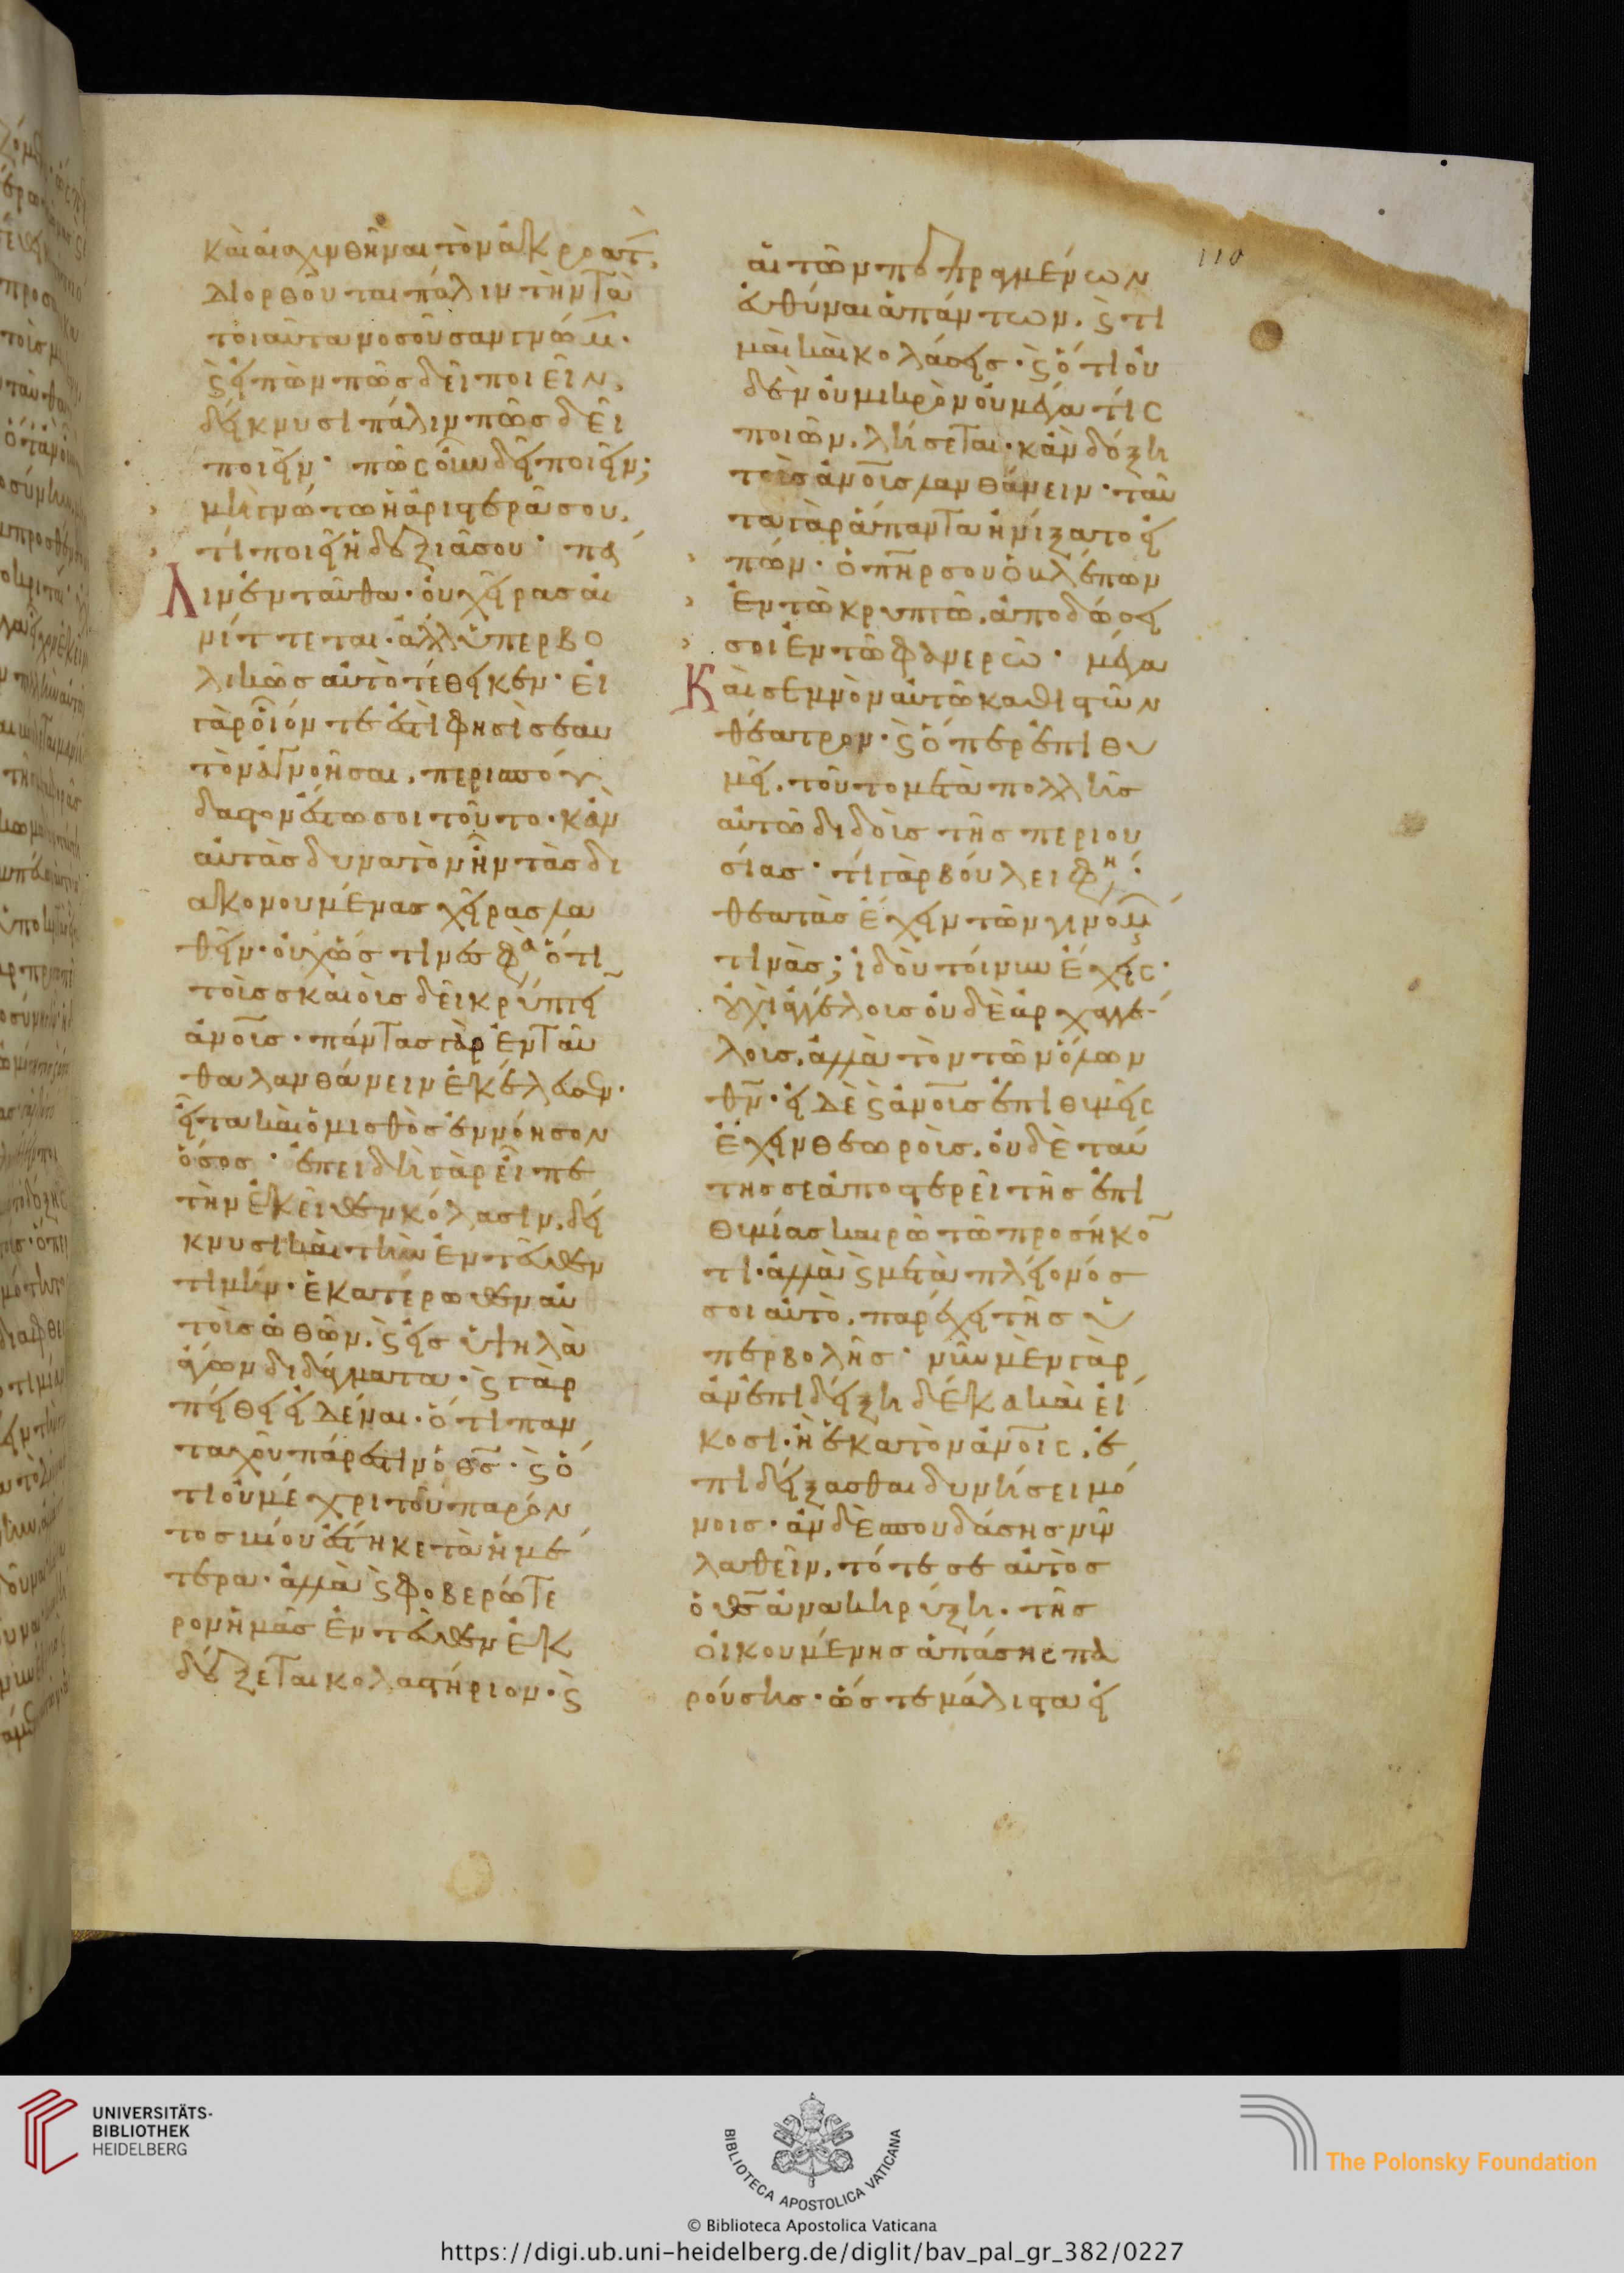 καὶ αἰσχυνθῆναι τὸν ἀκροατ̅,
διορθοῦται πάλιν τὴν τὰ
τοιαῦτα νοσοῦσαν γνώμ̅·
ϛ̀ εἰπὼν πῶς δεῖ ποιεῖν,
δείκνυσι πάλιν πῶς δεῖ
ποιεῖν· πῶς οὖν δεῖ ποιεῖν;
μὴ γνώτω ἡ ἀριστερά σου,
τί ποιεῖ ἡ δεξιά σου· πά
λιν ἐνταῦθα· οὐ χεῖρας αἰ
νίττεται· ἀλλ' ὑπερβο
λικῶς αὐτὸ τέθεικεν· εἰ
γὰρ οἷόν τε ἐστὶ φησὶ σεαυ
τὸν ἀγνοῆσαι, περισπού
δαστον ἔστω σοι τοῦτο· κἂν
αὐτὰς δυνατὸν ἦν τὰς δι
ακονουμένας χεῖρας λα
θεῖν· οὐχ ὥς τινές φα ὅτι
τοῖς σκαιοῖς δεῖ κρύπτει̅
ἀνοις· πάντας γὰρ ἐνταῦ
θα λανθάνειν ἐκέλευσεν·
εἶτα καὶ ὁ μισθὸς ἐννόησον
ὅσος· ἐπειδὴ γὰρ εἶπε
τὴν ἐκεῖθεν κόλασιν, δεί
κνυσι καὶ τὴν ἐντεῦθεν
τιμήν· ἑκατέρωθεν αὐ
τοὺς ὠθῶν, ϛ̀ εἰς ὑψηλὰ
ἄγων διδάγματα· ϛ̀ γὰρ
πείθει εἰδέναι· ὅτι παν
ταχοῦ πάρεστιν ὁ θς̅· ϛ̀ ὅ
τι οὐ μέχρι τοῦ παρόν
τος βίου ἕστηκε τὰ ἡμέ
τερα· ἀλλὰ ϛ̀ φοβερώτε
ρον ἡμᾶς ἐντεῦθεν ἐκ
δέξεται κολαστήριον· ϛ̀
110
αἱ τῶν πεπραγμένων
εὐθύναι ἁπάντων, ϛ̀ τι
μαὶ καὶ κολάσεις· ϛ̀ ὅτι οὐ
δὲν οὐ μικρὸν οὐ μέγα τίς
ποιῶν, λήσεται· κἂν δόξη
τοὺς ἀνους λανθάνειν· ταῦ
τα γὰρ ἅπαντα ἠνίξατο εἰ
πών· ὁ πηρ̅ σου ὁ βλέπων
ἐν τῷ κρυπτῷ, ἀποδώσει
σοι ἐν τῷ φανερῷ· μέγα
καὶ σεμνὸν αὐτῶ καθιστῶν
θέατρον· ϛ̀ ὅπερ ἐπιθυ
μεῖ, τοῦτο μετὰ πολλῆς
αὐτῷ διδοὺς τῆς περιου
σίας· τί γὰρ βούλει φη·
θεατὰς ἔχειν τῶν γινομ̅
τινάς; ἰδοὺ τοίνυν ἔχεις·
οὐχὶ ἀγγέλους οὐδὲ ἀρχαγγέ
λους, ἀλλὰ τὸν τῶν ὅλων
θν̅· εἰ δὲ ϛ̀ ἀνους ἐπιθυμεῖς
ἔχειν θεωρούς, οὐδὲ ταύ
της σε ἀποστερεῖ τῆς ἐπι
θυμίας καιρῷ τῷ προσήκο̅
τι· ἀλλὰ ϛ̀ μετὰ πλείονός
σοι αὐτὸ, παρέχει τῆς ὑ
περβολῆς· νῦν μὲν γὰρ
ἂν ἐπιδείξη δέκα καὶ εἴ
κοσι· ἢ ἑκατὸν ἀνοις, ἐ
πιδείξασθαι δυνήσει μό
νοις· ἂν δὲ σπουδάσης νῦν
λαθεῖν, τότε σε αὐτὸς
ὁ θς̅ ἀνακηρύξη· τῆς
οἰκουμένης ἁπάσης πα
ρούσης· ὥστε μάλιστα εἰ
UNIVERSITÄTS-
BIBLIOTHEK
HEIDELBERG
BIBLIOTECA APOSTOLICA VATICANA
The Polonsky Foundation
© Biblioteca Apostolica Vaticana
https://digi.ub.uni-heidelberg.de/diglit/bav_pal_gr_382/0227